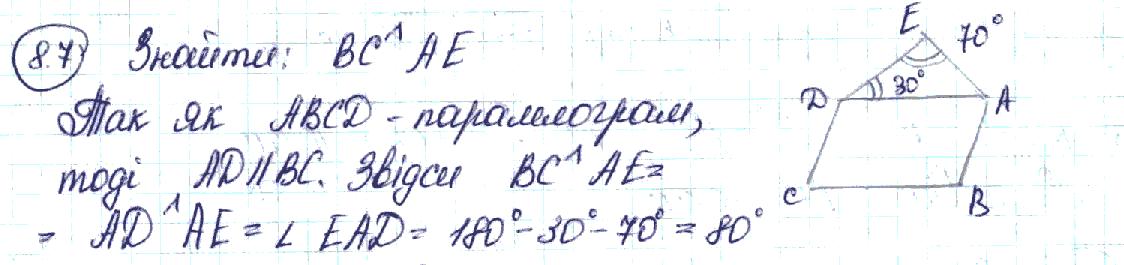 8.7 Знайти: BC^AE
Так як ABCD - параллограм,
тоді AD||BC. Звідси BC^AE=
= AD^AE = ∠EAD = 180° - 30° - 70° = 80°
E 70°
D 30° A
C B